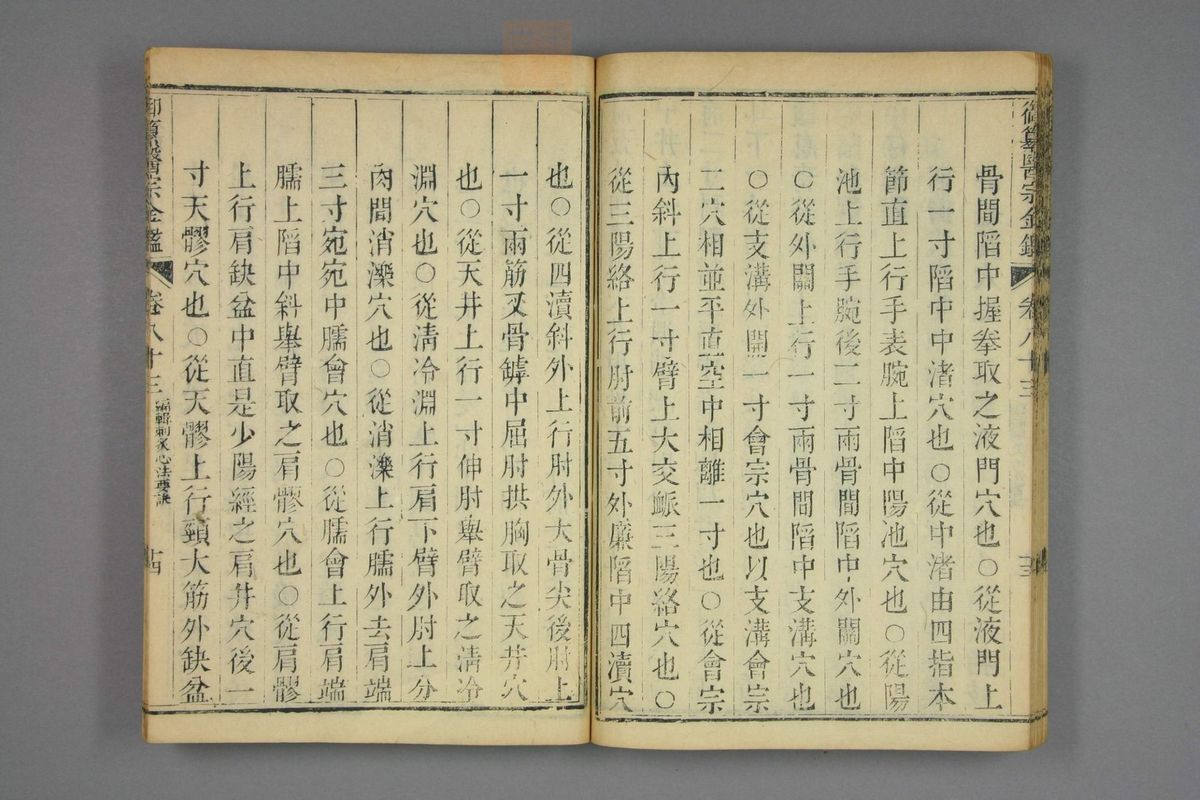 骨間陷中握拳取之液門穴也○從液門上
行一寸陷中中渚穴也○從中渚由四指本
節直上行手表腕上陷中陽池穴也○從陽
池上行手腕後二寸兩骨間陷中外關穴也
○從外關上行一寸兩骨間陷中支溝穴也
○從支溝外開一寸會宗穴也以支溝會宗
二穴相並平直空中相離一寸也○從會宗
內斜上行一寸臂上大交脈三陽絡穴也○
從三陽絡上行肘前五寸外廉陷中四瀆穴
也○從四瀆斜外上行肘外大骨尖後肘上
一寸兩筋叉骨罅中屈肘拱胸取之天井穴
也○從天井上行一寸伸肘舉臂取之淸冷
淵穴也○從淸冷淵上行肩下臂外肘上分
肉間消濼穴也○從消濼上行臑外去肩端
三寸宛宛中臑會穴也○從臑會上行肩端
臑上陷中斜舉臂取之肩髎穴也○從肩髎
上行肩缺盆中直是少陽經之肩井穴後一
寸天髎穴也○從天髎上行頸大筋外缺盆
御纂醫宗金鑑 卷八十三 編輯刺灸心法要訣 十四